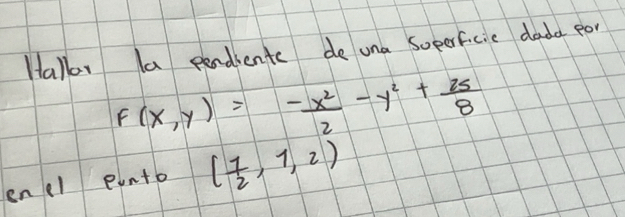 Hallar la pendiente de una superficie dada por
F(x,y) = -x²/2 - y² + 25/8
en el punto (1/2, 1, 2)